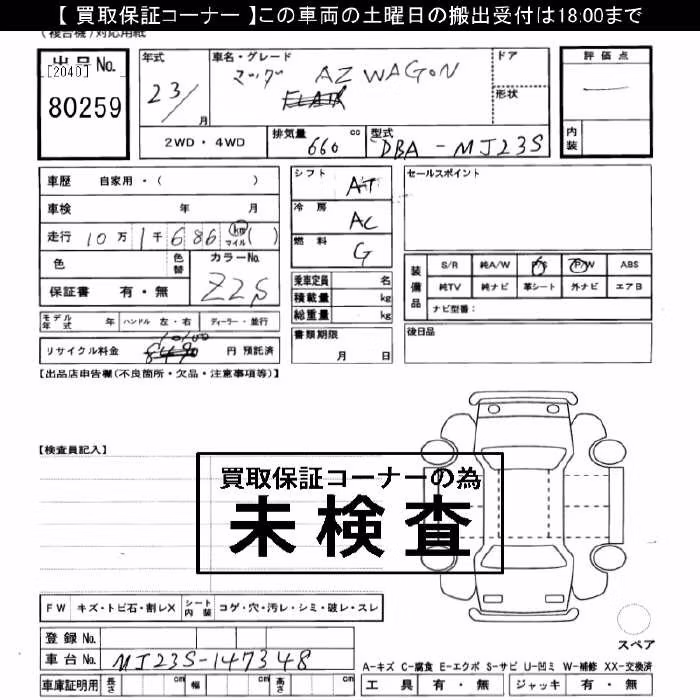 【 買取保証コーナー 】この車両の土曜日の搬出受付は18:00まで
(複合機)対応用紙
出品No.
[2040]
80259
年式
23/
月
車名・グレード
マツダ AZ WAGON
ドア
形状
2WD・4WD
排気量 660 cc
型式 DBA-MJ23S
評価点
内装
車歴 自家用・( )
車検 年 月
走行 10万1千686 km マイル( )
色
色替
カラーNo.
Z2S
保証書 有・無
シフト AT
冷房 AC
燃料 G
乗車定員 名
積載量 kg
総重量 kg
セールスポイント
装備品
S/R 純A/W P/S P/W ABS
純TV 純ナビ 革シート 外ナビ エアB
ナビ型番:
モデル年式 年 ハンドル 左・右 ディーラー・並行
書類期限
月 日
後日品
リサイクル料金 8490 10100 円 預託済
【出品店申告欄(不良箇所・欠品・注意事項等)】
【検査員記入】
買取保証コーナーの為
未検査
FW キズ・トビ石・割レX シート内装 コゲ・穴・汚レ・シミ・破レ・スレ
登録No.
車台No. MJ23S-147348
車庫証明用 長さ cm 幅 cm 高さ cm
スペア
A-キズ C-腐食 E-エクボ S-サビ U-凹ミ W-補修 XX-交換済
工具 有・無 ジャッキ 有・無